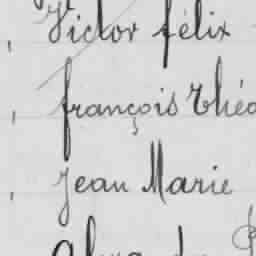 Victor félix
françois Théo
Jean Marie